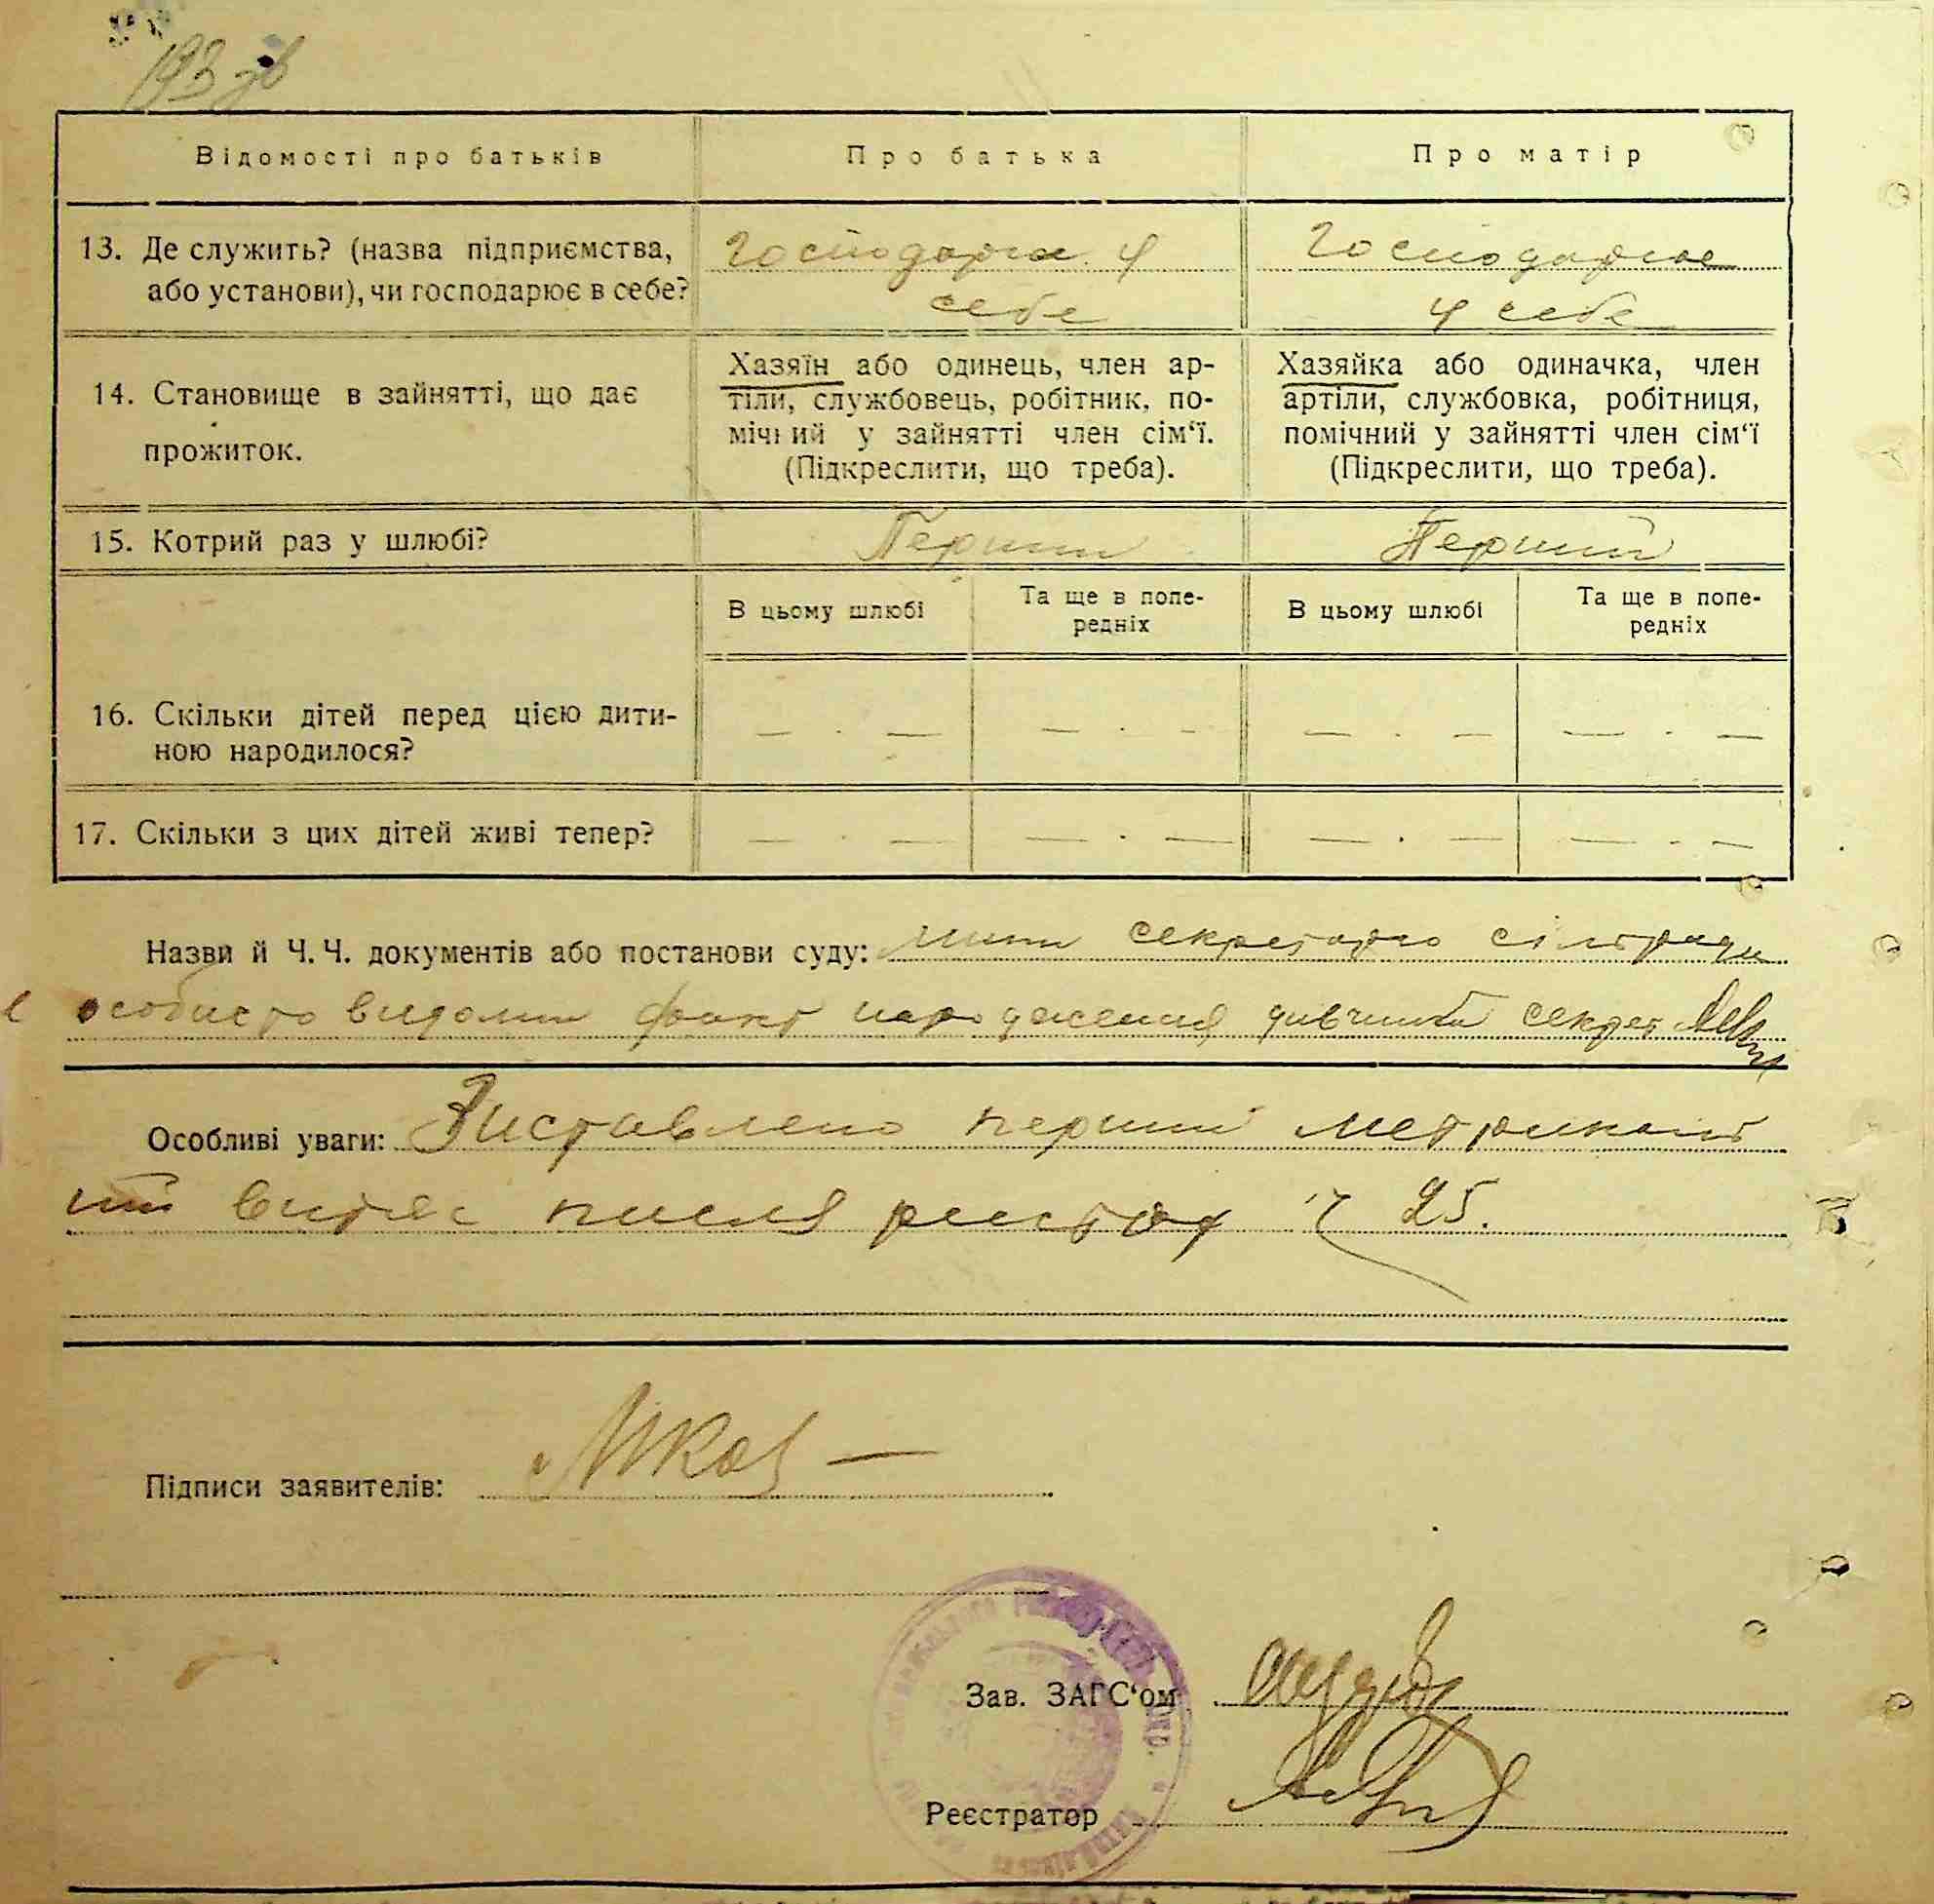 193 зв
Відомості про батьків
Про батька
Про матір
13. Де служить? (назва підприємства,
або установи), чи господарює в себе?
Господарює у
себе
Господарює
у себе
14. Становище в зайнятті, що дає
прожиток.
Хазяїн або одинець, член ар-
тіли, службовець, робітник, по-
мічний у зайнятті член сім‘ї.
(Підкреслити, що треба).
Хазяйка або одиначка, член
артіли, службовка, робітниця,
помічний у зайнятті член сім‘ї
(Підкреслити, що треба).
15. Котрий раз у шлюбі?
Перший
Перший
В цьому шлюбі
Та ще в попе-
редніх
В цьому шлюбі
Та ще в попе-
редніх
16. Скільки дітей перед цією дити-
ною народилося?
17. Скільки з цих дітей живі тепер?
Назви й Ч.Ч. документів або постанови суду: мини секретарю сільради
особисто видомий факт народження дивчинки секрет
Особливі уваги: Виставлено перший метрикаль
ний витяг писля реестру ч 25.
Підписи заявителів:
Зав. ЗАГС‘ом
Реєстратор